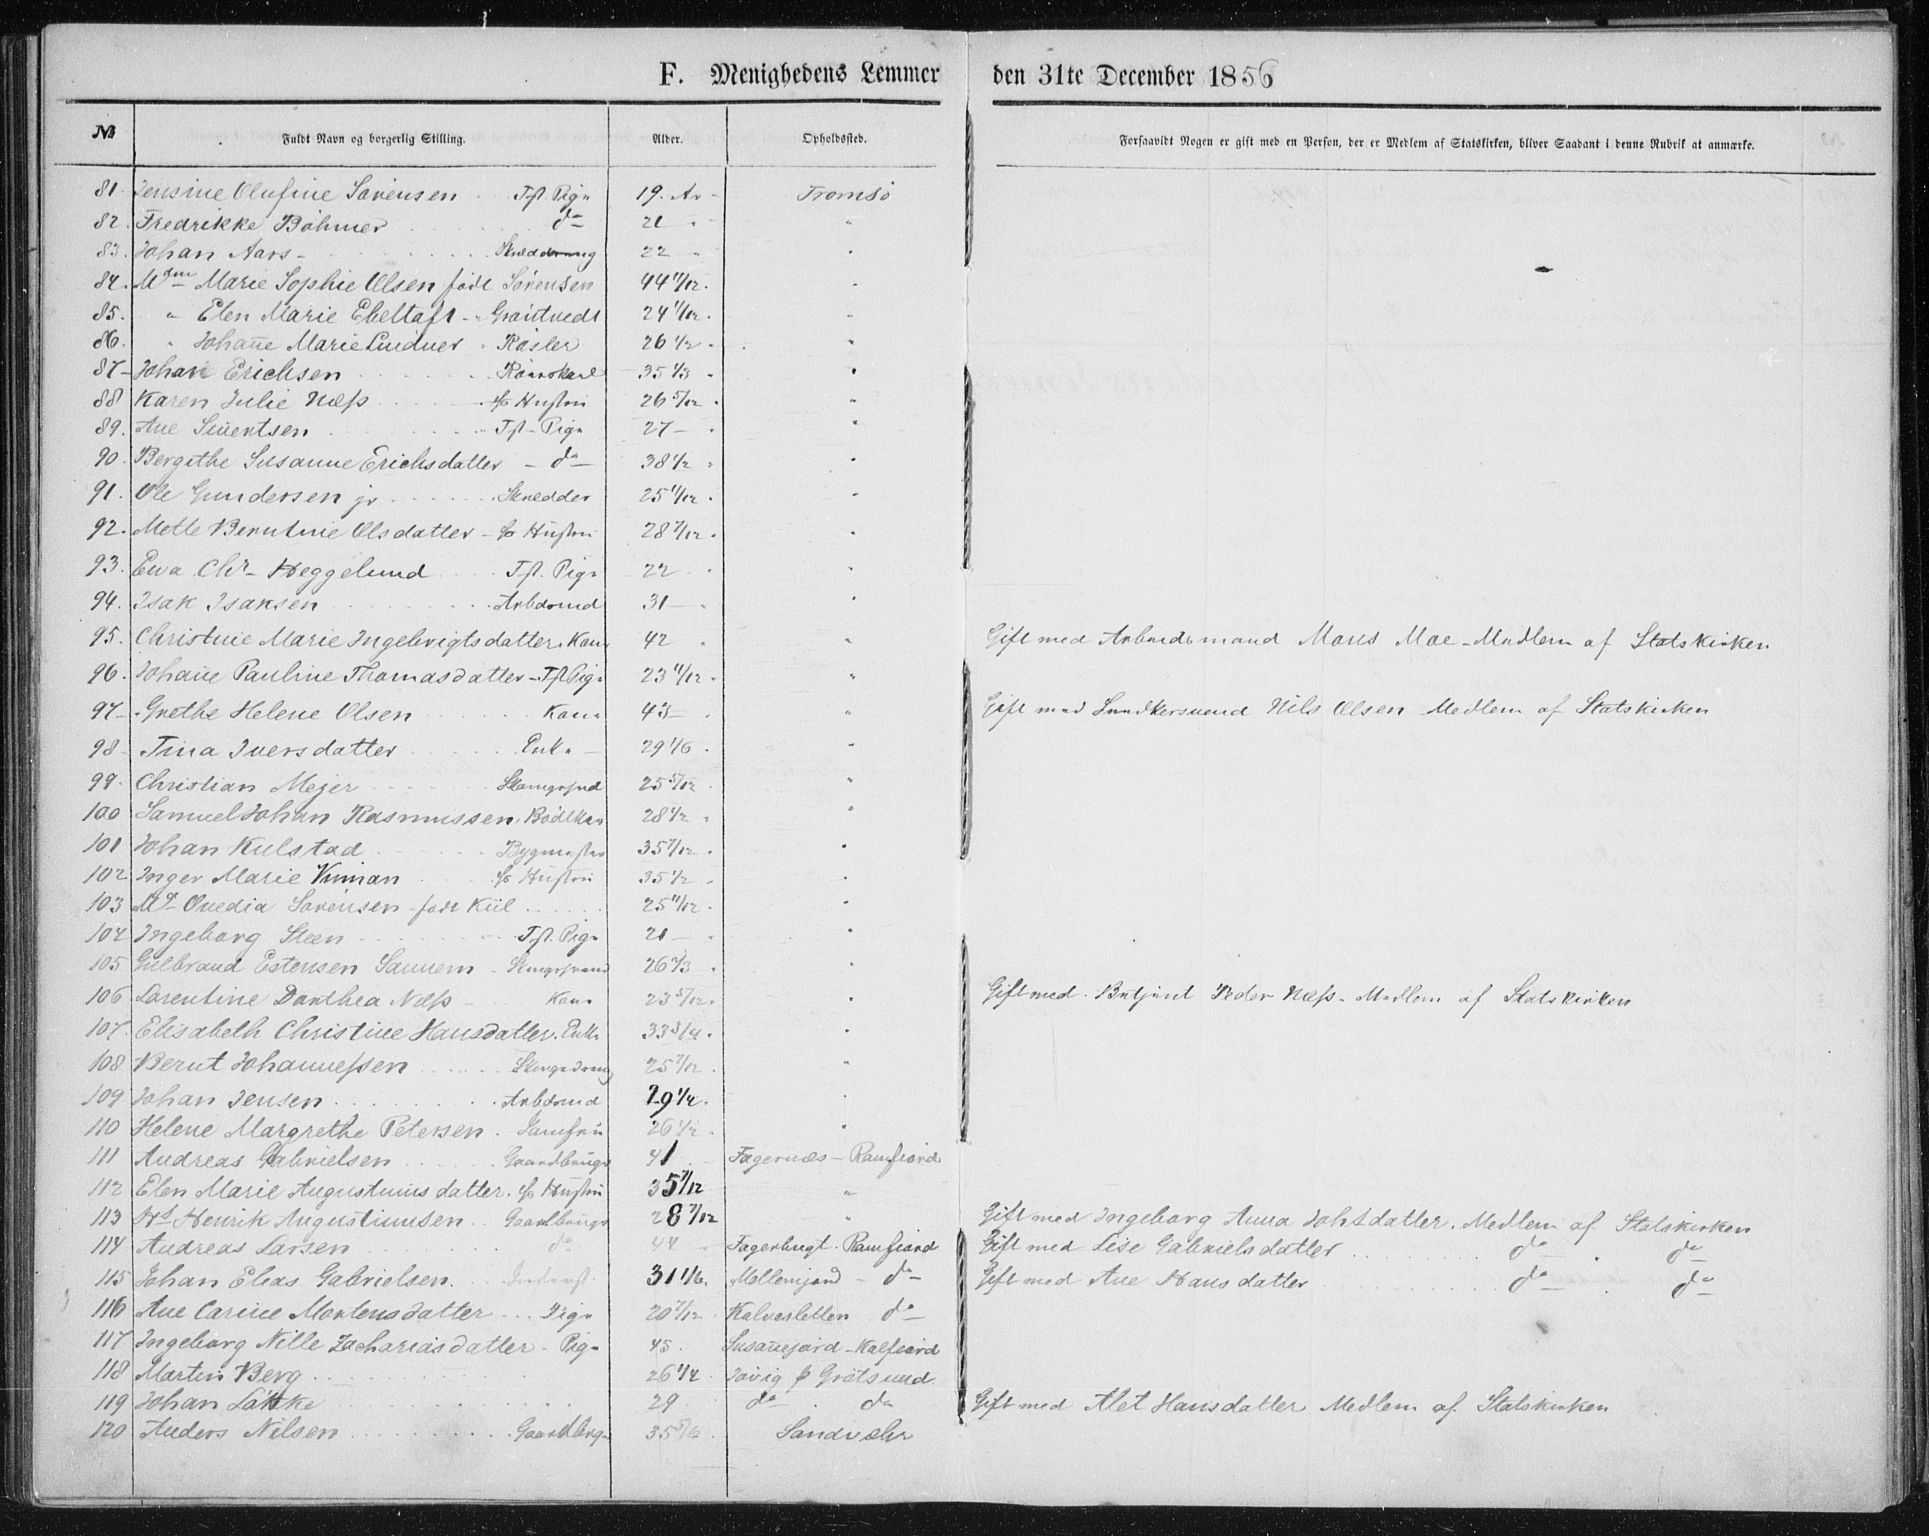 F. Menighedens Lemmer den 31te December 1856
№ Fuldt Navn og borgerlig Stilling. Alder. Opholdssted. Forsaavidt Nogen er gift med en Person, der er Medlem af Statskirken, bliver Saadant i denne Rubrik at anmærke.
81. Jensine Olufine Sørensen Tjst. Pige 19. Ar - Tromsö
82. Fredrikke Böhmer do 21 "
83. Johan Aars - 22 "
84. Mdm Marie Sophie Olsen föde Sörensen 44 11/12. "
85. " Elen Marie Ebeltaft - Gröntvedt 24 11/12. "
86. " Johañe Marie Lindner " Rösler 26 1/2 "
87 - Johan Erichsen 35 1/3 "
88 Karen Julie Næss Hustru 26 5/12. "
89. Ane Siventsen Tjst - Pige 27 - "
90. Bergithe Susanne Erichsdatter - do - 38 1/2 "
91. Ole Gundersen jr Skrædder 25 11/12. "
92. Mette Berntine Olsdatter - Hustru 28 7/12. "
93. Ewa Chr - Heggelund Tjst. Pige 22 "
94. Isak Isaksen Arbdsmd 31 - "
95. Christine Marie Ingebrigtsdatter. Kone 42 " Gift med Arbeidsmand Mons Moe - Medlem af Statskirken
96. Johañe Pauline Thomasdatter - Tjst Pige 23 11/12. "
97 - Grethe Helene Olsen Kone 43 - " Gift med Nils Olsen Medlem af Statskirken
98 - Tina Iversdatter Enke 29 1/6. "
99. Christian Mejer 25 5/12 "
100 Samuel Johan Rasmussen. Bödtker 28 1/2 "
101 Johan Kulstad Bygmester 35 7/12. "
102 Inger Marie Kiman Hustru 35 1/2 "
103 Md - Ovedia Sörensen - föde Kiil 25 11/12. "
104 Ingeborg Steen Tjst. Pige 21 - "
105 Gulbrand Estensen Sannem - 26 1/3 "
106 Larentine Dorthea Næss - Kone 23 5/12. " Gift med Peder Næss - Medlem af Statskirken
107. Elisabeth Christine Hansdatter. Enke 33 3/4. "
108 Bernt Johannessen 25 7/12. "
109 Johan Jensen Arbdsmd 29 1/4. "
110 Helene Margrethe Petersen. Jomfru 26 1/2. "
111 Andreas Gabrielsen Gaardbruger 41 Fagernæs - Ramfiord
112 Elen Marie Augustinusdatter. Hustru 35 7/12 "
113 Hs Henrik Augustinusen Gaardbruger 28 7/12 " Gift med Ingeborg Anna Johsdatter. Medlem af Statskirken
114 Andreas Larsen do 44 - Fagerbugt. Ramfiord Gift med Lise Gabrielsdatter do do
115 Johan Elias Gabrielsen. Inderst. 31 1/6. Mellemjord - do - Gift med Ane Hansdatter do do
116 Ane Carine Mortensdatter Pige 20 7/12 Kalvesletten do
117 Ingeborg Nille Zachariasdatter - Pige 45. Susañejord - Kalfiord
118 Martin Berg 26 1/4 Jövig p Grötsund.
119 Johan Lökke 29 do do Gift med Alet Hansdatter Medlem af Statskirken
120 Anders Nilsen Gaardbrg 35 5/6 Sandvæhr